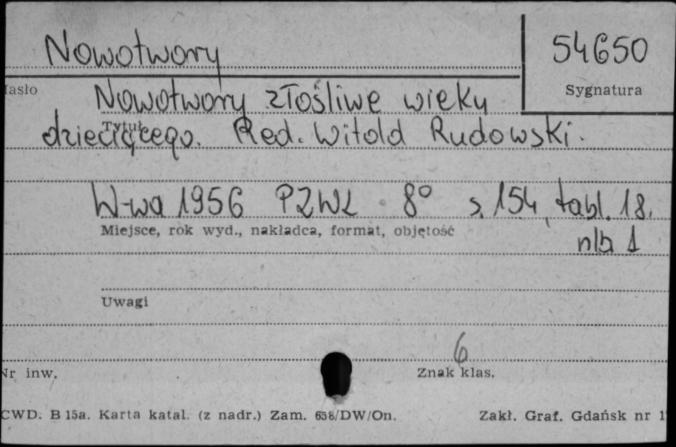 Nowotwory
54650
Hasło
Sygnatura
Nowotwory złośliwe wieku
Tytuł
dziecięcego. Red. Witold Rudowski.
W-wa 1956 PZWL 8° s. 154, tabl. 18.
Miejsce, rok wyd., nakładca, format, objętość
nlb 1
Uwagi
6
Nr inw.
Znak klas.
CWD. B 15a. Karta katal. (z nadr.) Zam. 658/DW/On.
Zakł. Graf. Gdańsk nr